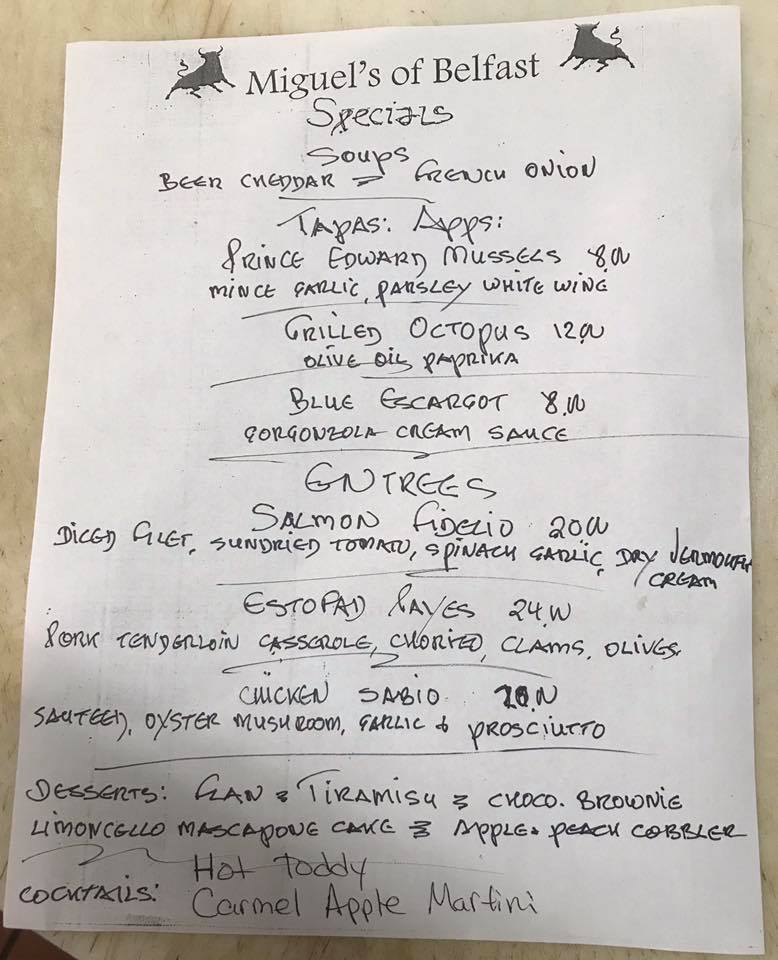 Miguel's of Belfast
Specials
Soups
BEER CHEDDAR FRENCH ONION
TAPAS: APPS:
PRINCE EDWARD MUSSELS 8.00
MINCE GARLIC, PARSLEY WHITE WINE
GRILLED OCTOPUS 12.00
OLIVE OIL PAPRIKA
BLUE ESCARGOT 8.00
GORGONZOLA CREAM SAUCE
ENTREES
SALMON FIDELIO 20.00
DICED FILET, SUNDRIED TOMATO, SPINACH GARLIC, DRY VERMOUTH
CREAM
ESTOFAD 24.00
PORK TENDERLOIN CASSEROLE, CHORIZO, CLAMS, OLIVES
CHICKEN SABIO
SAUTEED, OYSTER MUSHROOM, GARLIC & PROSCIUTTO
DESSERTS: FLAN & TIRAMISU & CHOCO. BROWNIE
LIMONCELLO MASCAPONE CAKE & APPLE. PEACH COBBLER
Hot Toddy
COCKTAILS: Carmel Apple Martini